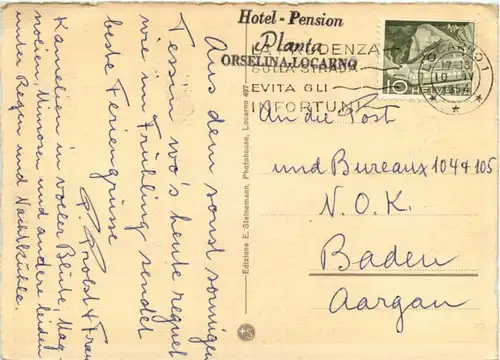 Hotel - Pension
Planta
ORSELINA-LOCARNO
LA PRUDENZA
SULLA STRADA
EVITA GLI
INFORTUNI
LOCARNO 1
17-18
10. IV
1954
10
An die Post
und Bureaux 104 & 105
N. O. K.
Baden
Aargau
Edizione E. Steinemann, Photohouse, Locarno
Aus dem sonst sonnigen
Tessin wo's heute regnet
wie im Frühling sendet
beste Feriengrüsse
P. Probst & Frau
Kamelien in voller Blüte, Mag-
nolien, Mimosen und andere leiden
unter Regen und Nachtkühle.